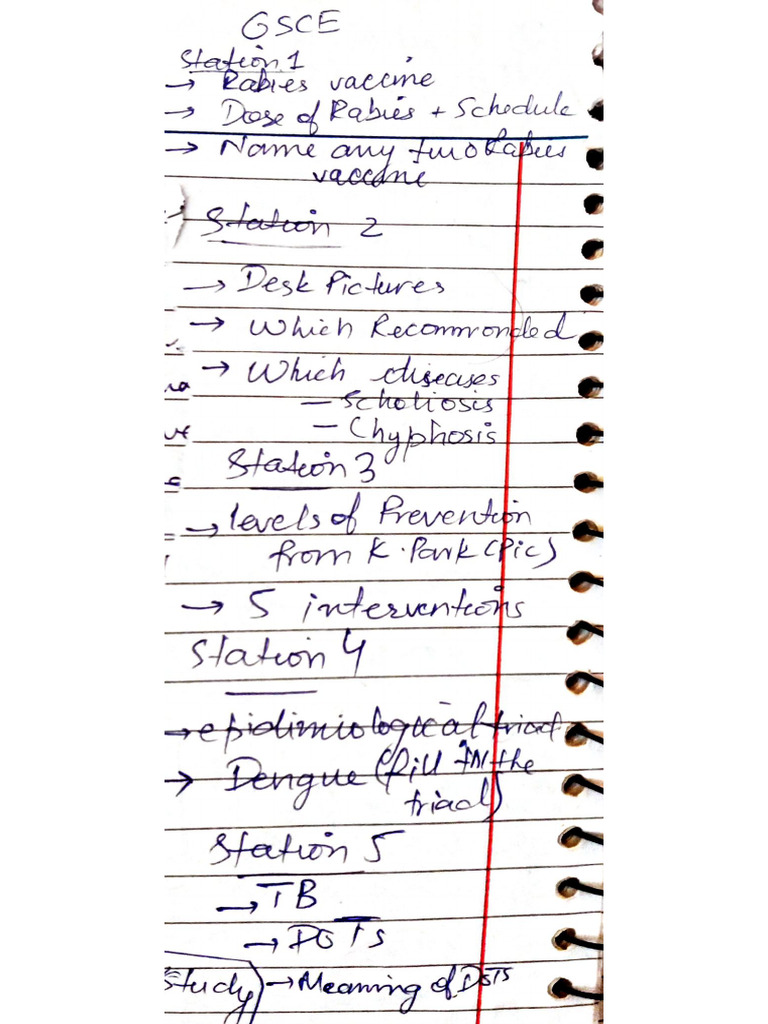 GSCE
Station 1
→ Rabies vaccine
→ Dose of Rabies + Schedule
→ Name any two Rabies
vaccine
Station 2
→ Desk Pictures
→ Which Recommonded
→ Which diseases
– Scholiosis
– Chyphosis
Station 3
→ levels of Prevention
from K. Park (Pic)
→ 5 interventions
Station 4
→ epidimiological triad
→ Dengue (fill in the
triad)
Station 5
→ TB
→ DOTS
Study → Meaning of DOTS